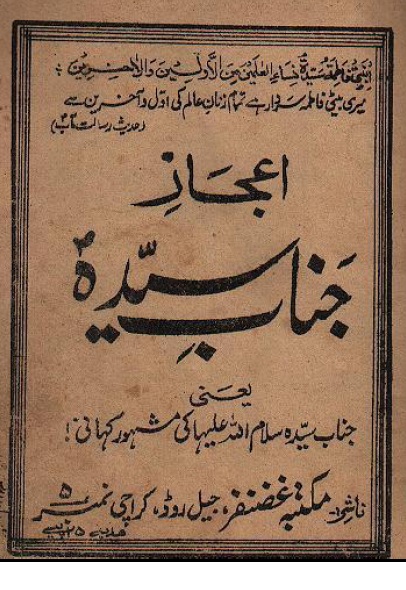 ابنتی فاطمة سیدة نساء العلمین من الاولین والاٰخرین
میری بیٹی فاطمہ سردار ہے تمام زنانِ عالم کی اوّل و آخرین سے
(حدیث رسالت مآبؐ)
اعجازِ
جنابِ سیّدہؑ
یعنی
جناب سیّدہ سلام اللہ علیہا کی مشہور کہانی!
ناشر:۔ مکتبۂ غضنفر، جیل روڈ، کراچی نمبر ۵
ھدیہ ۲۵ پیسے